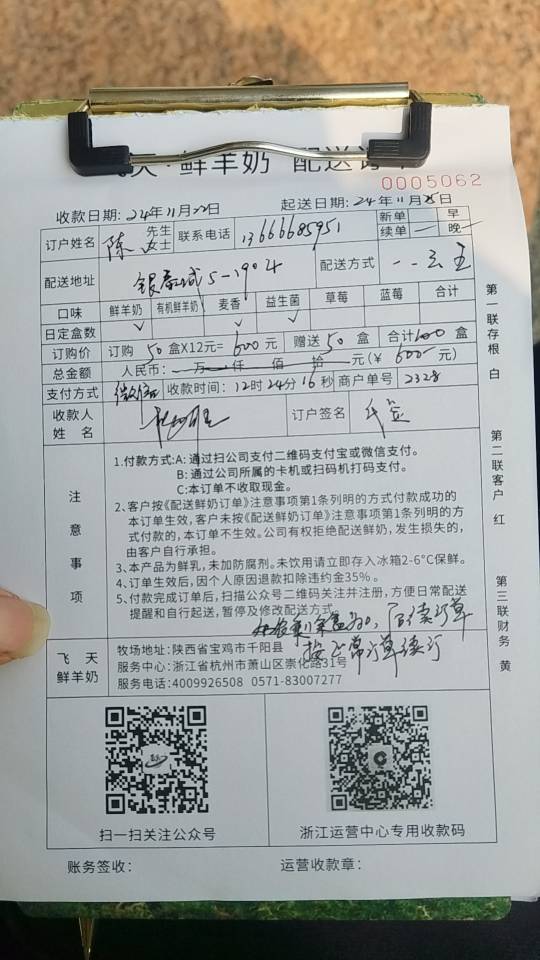 天·鲜羊奶 配送订单
0005062
收款日期:24年11月22日 起送日期:24年11月25日
订户姓名 陈 先生 女士 联系电话 13666685951 新单 早
续单 晚
配送地址 5-1904 配送方式 一.二.三.五
口味 鲜羊奶 有机鲜羊奶 麦香 益生菌 草莓 蓝莓 合计
日定盒数 √ √ √
订购价 订购 50 盒X12元= 600 元 赠送 50 盒 合计100 盒
总金额 人民币: 万 仟 佰 拾 元(¥ 600 元)
支付方式 微信 收款时间: 12时 24分 16秒 商户单号 2328
收款人
姓 名 订户签名 代签
注意事项
1.付款方式:A: 通过扫公司支付二维码支付宝或微信支付。
B: 通过公司所属的卡机或扫码机打码支付。
C:本订单不收取现金。
2、客户按《配送鲜奶订单》注意事项第1条列明的方式付款成功的
本订单生效,客户未按《配送鲜奶订单》注意事项第1条列明的方
式付款的,本订单不生效。公司有权拒绝配送鲜奶,发生损失的,
由客户自行承担。
3、本产品为鲜乳,未加防腐剂。未饮用请立即存入冰箱2-6°C保鲜。
4、订单生效后,因个人原因退款扣除违约金35%。
5、付款完成订单后,扫描公众号二维码关注并注册,方便日常配送
提醒和自行起送,暂停及修改配送方式。
后续订单
按正常订单续订
飞 天
鲜羊奶
牧场地址:陕西省宝鸡市千阳县
服务中心:浙江省杭州市萧山区崇化路31号
服务电话:4009926508 0571-83007277
扫一扫关注公众号 浙江运营中心专用收款码
账务签收: 运营收款章:
第一联存根 白
第二联客户 红
第三联财务 黄